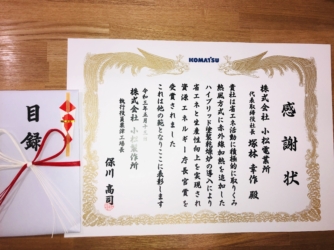 KOMATSU
感謝状
株式会社 小松電業所
代表取締役社長 塚林幸作 殿
貴社は省エネ活動に積極的に取りくみ
熱風方式に赤外線加熱を追加した
ハイブリッド塗装乾燥炉の導入により
省エネと生産性向上を実現され
資源エネルギー庁長官賞を
受賞されました
これは他の範となりここに表彰します
令和三年五月十
株式会社 小松製作所
執行役員粟津工場長
保川高司
目録